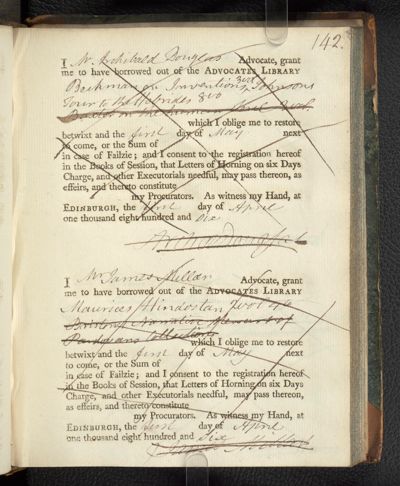 142.
I Mr. Archibald Douglas Advocate, grant
me to have borrowed out of the ADVOCATES LIBRARY
Beckman on Inventions 3 vol Johnsons
Tour to the Hebrides 8vo
on the
which I oblige me to restore
betwixt and the first day of May next
to come, or the Sum of
in case of Failzie; and I consent to the registration hereof
in the Books of Session, that Letters of Horning on six Days
Charge, and other Executorials needful, may pass thereon, as
effeirs, and thereto constitute
my Procurators. As witness my Hand, at
EDINBURGH, the first day of April
one thousand eight hundred and six
I Mr James Millar Advocate, grant
me to have borrowed out of the ADVOCATES LIBRARY
Maurices Hindostan
Narrative Memoirs of
Collection
which I oblige me to restore
betwixt and the first day of May next
to come, or the Sum of
in case of Failzie; and I consent to the registration hereof
in the Books of Session, that Letters of Horning on six Days
Charge, and other Executorials needful, may pass thereon,
as effeirs, and thereto constitute
my Procurators. As witness my Hand, at
EDINBURGH, the first day of April
one thousand eight hundred and six